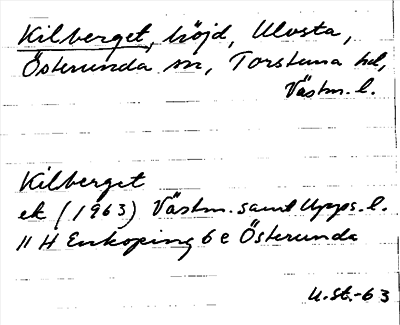 Kilberget, höjd, Ulvsta,
Österunda sn, Torstuna hd,
Västm. l.
Kilberget
ek (1963) Västm. samt Upps. l.
11 H Enköping 6 e Österunda
U.St.-63